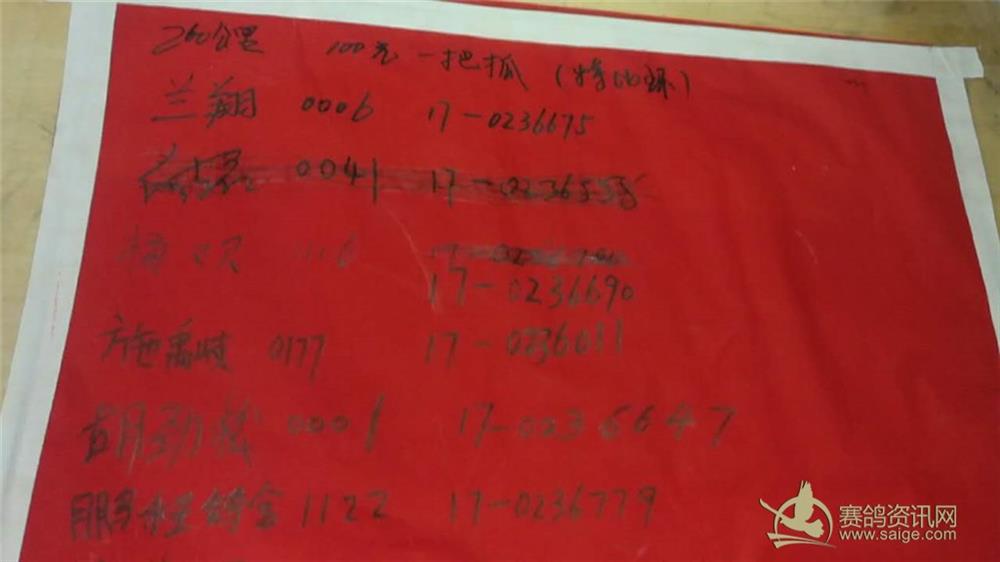 260公里 100元 一把抓 (特比环)
兰翔 0006 17-0236675
0041 17-02365
17-0236690
施禹岐 0177 17-0236011
胡劲 0001 17-0236647
1122 17-0236779
赛鸽资讯网
www.saige.com